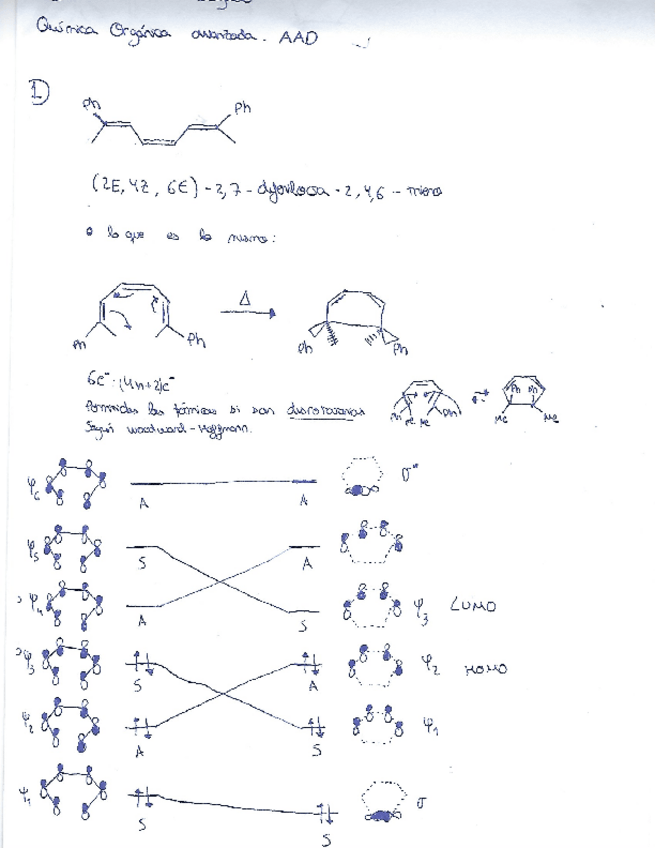 Química Orgánica avanzada. AAD
1
Ph
Ph
(2E, 4Z, 6E) - 2,7 - 2, 4, 6 -
o lo que es lo mismo:
Δ
Ph
Ph
Ph
Ph
6e⁻: (4n+2)e⁻
Permitidas las térmicas si son disrotatorias
Según Woodward-Hoffmann.
Ph
Me
Me
Ph
Ph
Ph
Me
Me
φ6
A
A
σ*
φ5
S
A
φ4
A
S
φ3
LUMO
φ3
S
A
φ2
HOMO
φ2
A
S
φ1
φ1
S
S
σ